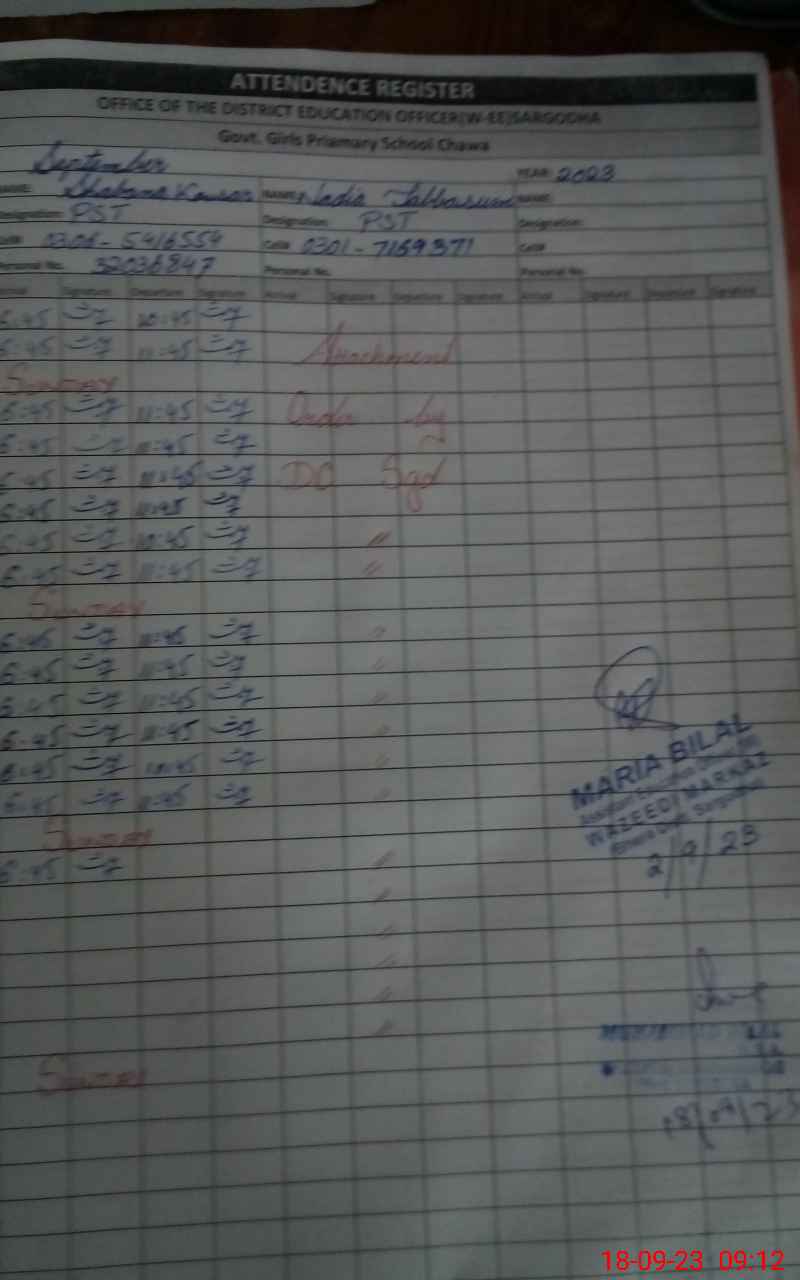 ATTENDENCE REGISTER
OFFICE OF THE DISTRICT EDUCATION OFFICER(W-EE)SARGODHA
Govt. Girls Priamary School Chawa
September YEAR: 2023
NAME: Shabana Kausar NAME: Nadia Tabbasum NAME:
Designation: PST Designation: PST Designation:
Cell# 0306-5416554 Cell# 0301-7169371 Cell#
Personal No. 32036847 Personal No. Personal No.
Arrival Signature Departure Signature Arrival Signature Departure Signature Arrival Signature Departure Signature
6:45 10:45
6:45 11:45 Attachment
Sunday
6:45 11:45 Order by
6:45 11:45
6:45 11:45 DO Sgd
6:45 11:45
6:45 10:45 "
6:45 11:45 "
Sunday
6:45 11:45 "
6:45 11:45 "
6:45 11:45 "
6:45 11:45 "
6:45 10:45 "
6:45 11:45 "
Sunday
6:45 "
"
"
"
"
"
Sunday
MARIA BILAL
Assistant Education Officer
WAZEEDI MARKAZ
Sargodha
2/9/23
18/09/23
18-09-23 09:12